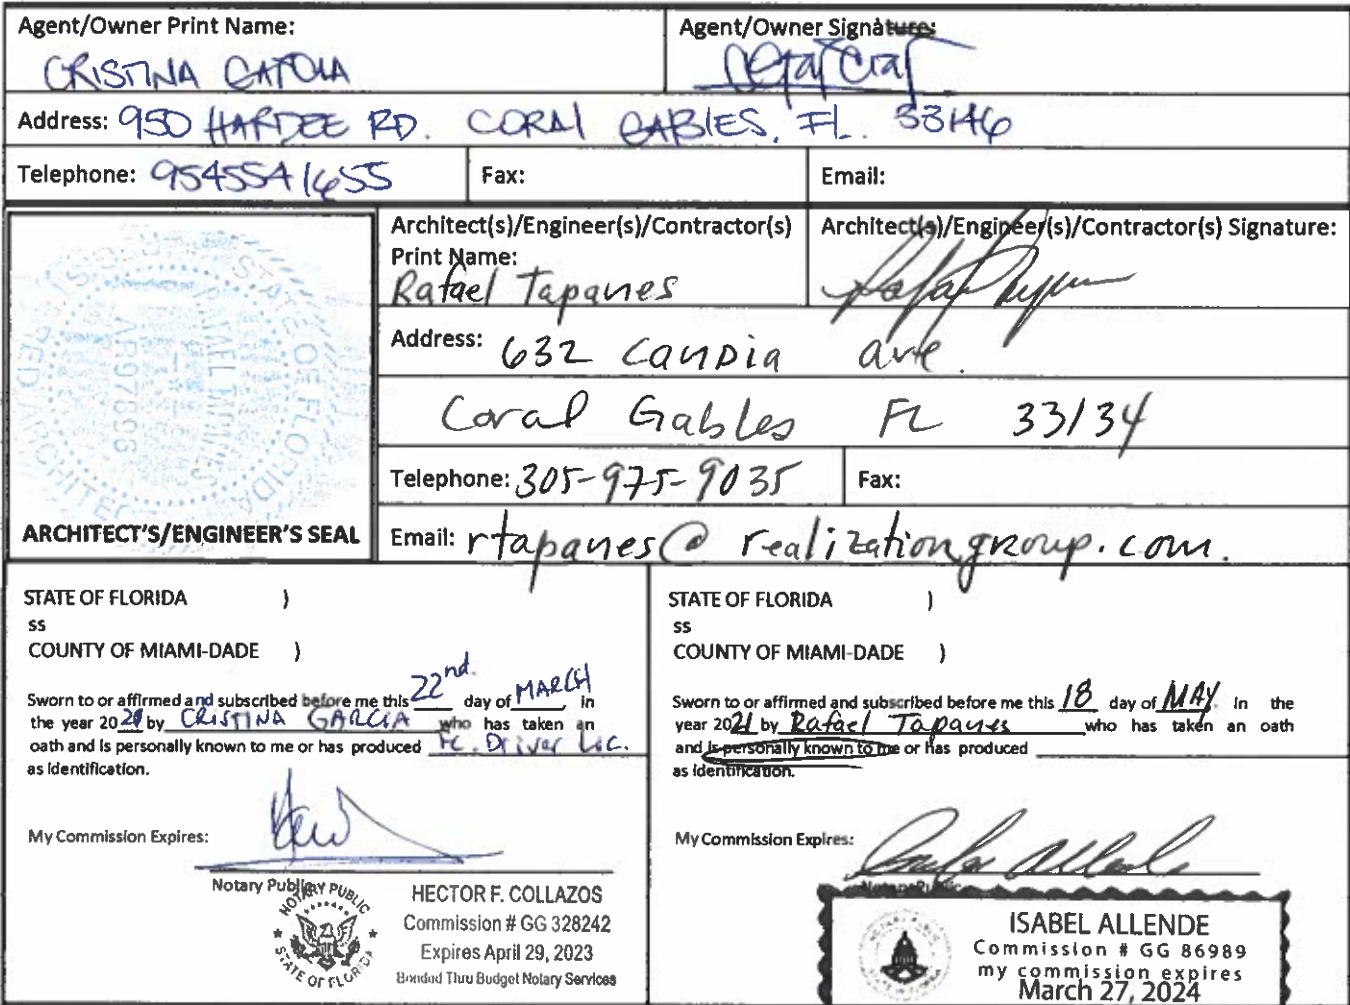 Agent/Owner Print Name:
CRISTINA GARCIA
Agent/Owner Signature:
Address: 950 HARDEE RD. CORAL GABLES, FL. 33146
Telephone: 9545541655
Fax:
Email:
Architect(s)/Engineer(s)/Contractor(s)
Print Name:
Rafael Tapanes
Architect(s)/Engineer(s)/Contractor(s) Signature:
Address: 632 Candia ave.
Coral Gables FL 33134
Telephone: 305-975-9035
Fax:
Email: rtapanes@realizationgroup.com.
STATE OF FLORIDA
AR97695
ARCHITECT'S/ENGINEER'S SEAL
STATE OF FLORIDA )
ss
COUNTY OF MIAMI-DADE )
Sworn to or affirmed and subscribed before me this 22nd. day of MARCH in
the year 2021 by CRISTINA GARCIA who has taken an
oath and is personally known to me or has produced Driver Lic.
as identification.
My Commission Expires:
Notary Public
NOTARY PUBLIC
STATE OF FLORIDA
HECTOR F. COLLAZOS
Commission # GG 328242
Expires April 29, 2023
Bonded Thru Budget Notary Services
STATE OF FLORIDA )
ss
COUNTY OF MIAMI-DADE )
Sworn to or affirmed and subscribed before me this 18 day of MAY. in the
year 2021 by Rafael Tapanes who has taken an oath
and is personally known to me or has produced
as identification.
My Commission Expires:
Notary Public
ISABEL ALLENDE
Commission # GG 86989
my commission expires
March 27, 2024